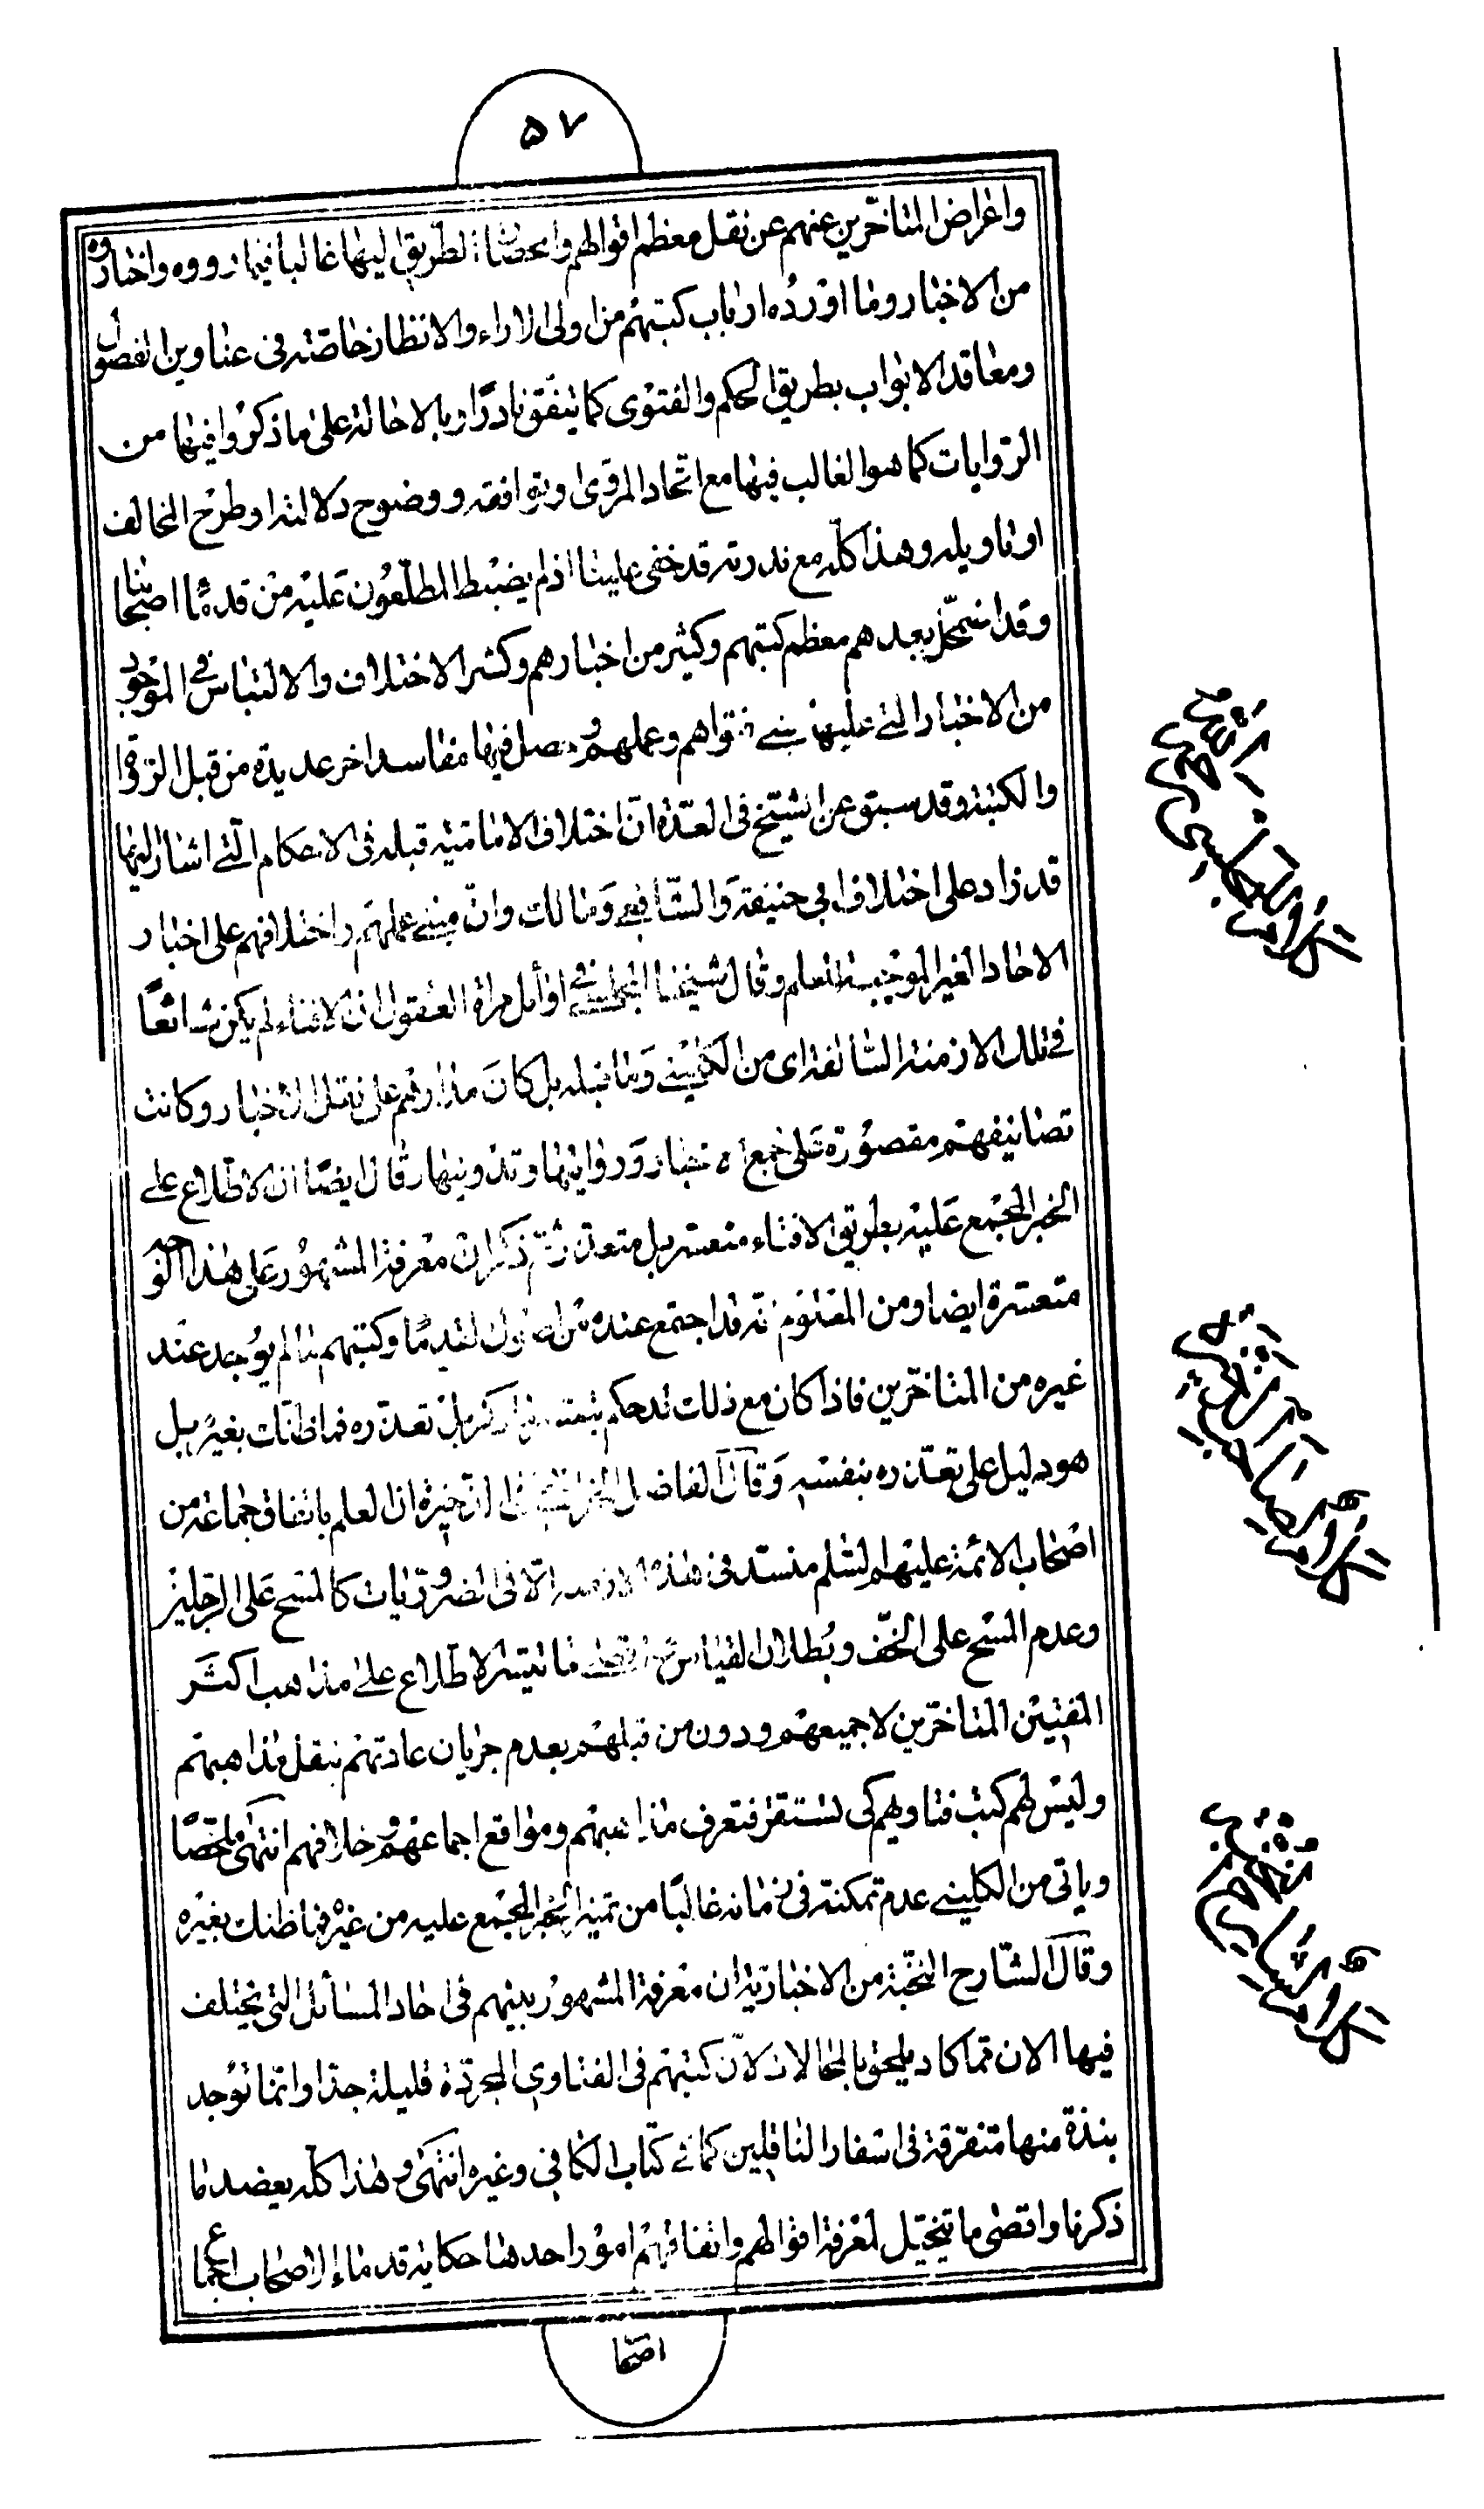 ٥٧
واعراض المتاخرين عنهم عن نقل معظم اقوالهم وانحصار الطريق اليها غالبا فيما رووه واختاروه
من الاخبار وما اورده ارباب كتبهم من اولى الاراء والانظار خاصة فى عناوين الفصول
ومعاقد الابواب بطريق الحكم والفتوى كما يتفق نادرا او بالاحالة على ما ذكروا فيها من
الروايات كما هو الغالب فيها مع اتحاد المروى او توافقه ووضوح دلالته او طرح المخالف
او تاويله وهذا كله مع ندرته قد خفى علينا اذ لم يضبط المطلعون عليه من قدماء اصحابنا
وقد اضمحل بعدهم معظم كتبهم وكثير من اخبارهم وكثر الاختلاف والالتباس فى الموجود
من الاخبار التى عليها بنى فتواهم وعملهم وحصل فيها مفاسد اخر عديدة من قبل الرواة
والكتبة وقد سبق عن الشيخ فى العدة ان اختلاف الامامية قبله فى الاحكام التى اشار اليها
قد زاد على اختلاف ابى حنيفة والشافعى ومالك وان مبنى عملهم واختلافهم على اخبار
الاحاد الغير الموجبة للعلم وقال شيخنا المجلسى فى اوائل مراة العقول ان الافتاء لم يكن شائعا
فى تلك الازمنة السالفة اى من الكلينى وما قبله بل كان مدارهم على نقل الاخبار وكانت
تصانيفهم مقصورة على جمع الاخبار وروايتها وتدوينها وقال ايضا ان الاطلاع على
الخبر المجمع عليه بطريق الافتاء متعسر بل متعذر ثم ذكر ان معرفة المشهور على هذا الوجه
متعسرة ايضا ومن المعلوم انه قد اجتمع عنده من اصول القدماء وكتبهم ما لم يوجد عند
غيره من المتاخرين فاذا كان مع ذلك قد حكم بتعسر ما ذكر بل تعذره فما ظنك بغيره بل
هو دليل على تعذره بنفسه وقال الفاضل الجزائرى ان العلم باتفاق جماعة من
اصحاب الائمة عليهم السلم منسد فى هذه الازمنة الا فى الضروريات كالمسح على الرجلين
وعدم المسح على الخف وبطلان القياس ما تيسر الاطلاع على مذاهب اكثر
المفتين المتاخرين لا جميعهم ودون من قبلهم بعدم جريان عادتهم بنقل مذاهبهم
وليس لهم كتب فتاويهم كى تستقر فتعرف مذاهبهم ومواقع اجماعهم وخلافهم انتهى ملخصا
وياتى من الكلينى عدم تمكنه فى زمانه غالبا من تميز الخبر المجمع عليه من غيره فما ظنك بغيره
وقال الشارح النخبة من الاخبارية ان معرفة المشهور بينهم فى احاد المسائل التى يختلف
فيها الان مما كاد يلحق بالمحالات لان كتبهم فى الفتاوى المجردة قليلة جدا وانما توجد
نبذة منها متفرقة فى اسفار الناقلين كما فى كتاب الكافى وغيره انتهى وهذا كله يعضد ما
ذكرنا واقصى ما يتخيل لمعرفة اقوالهم واتفاقهم امور احدها حكاية قدماء الاصحاب اجماع
اصحا